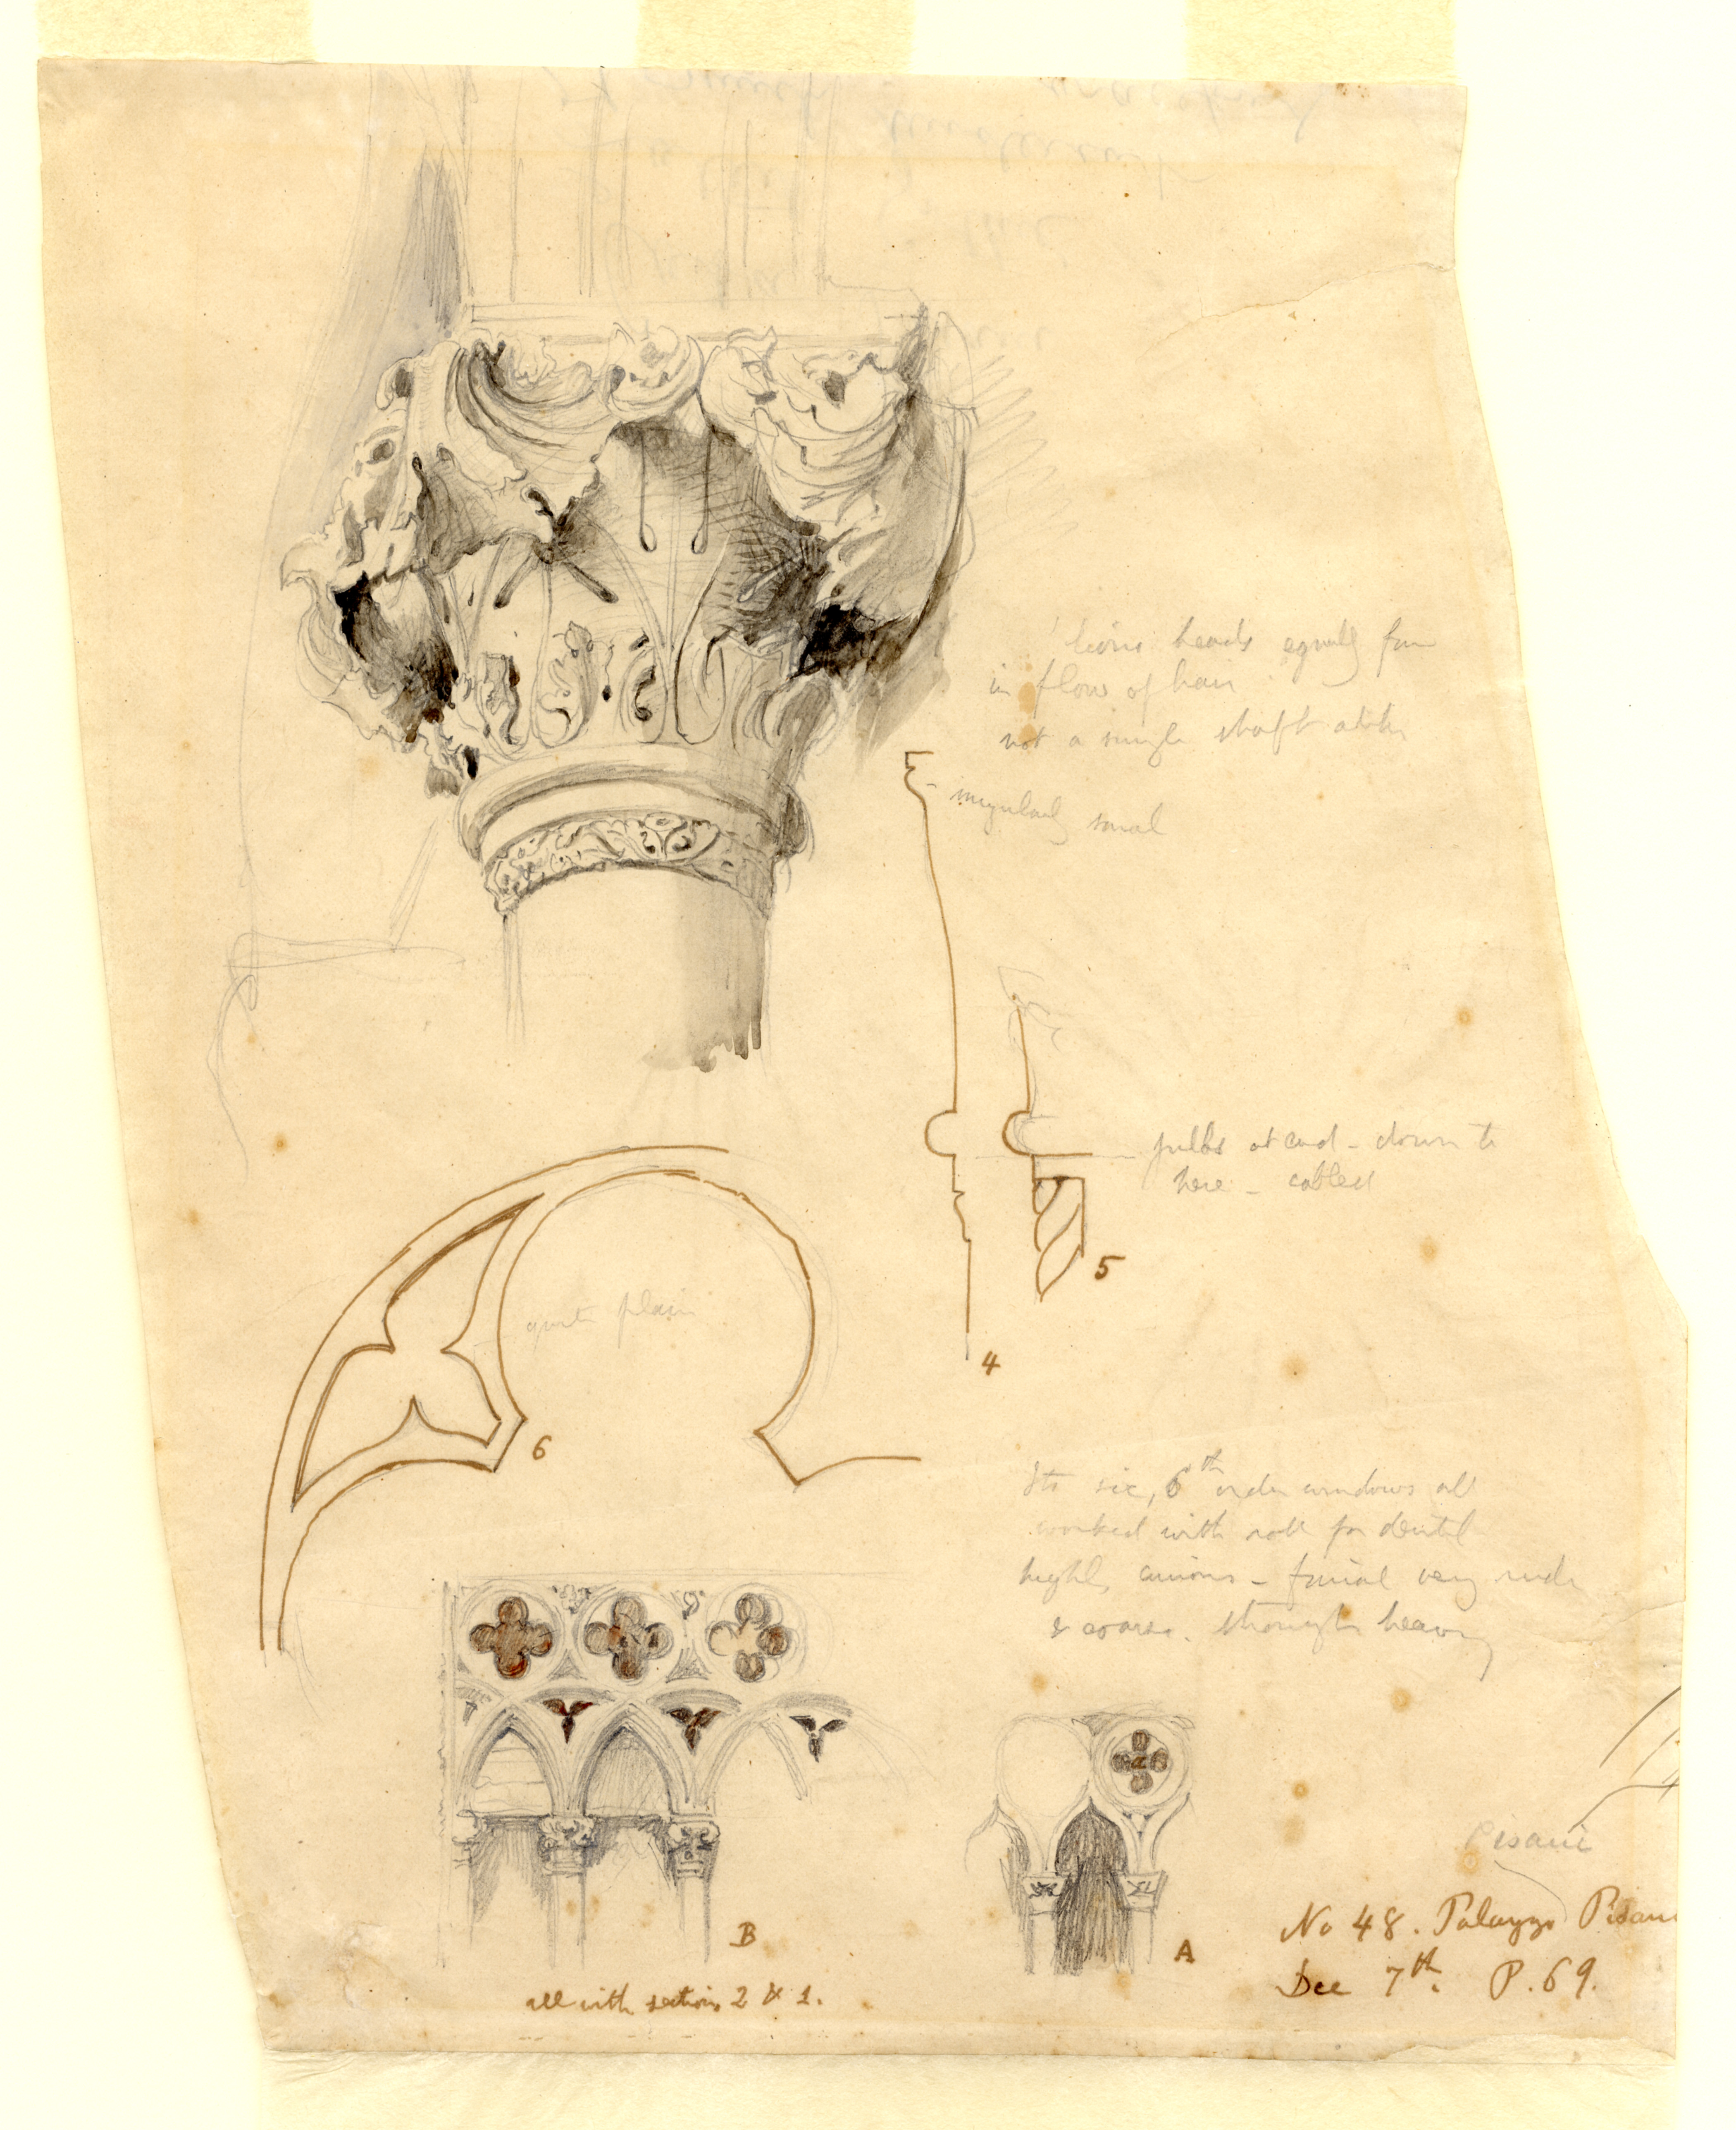 lions heads equally fine
in flow of hair
not a single shaft alike
small
at end - down to
here - cabled
5
4
quite plain
6
Its six, 6th order windows all
worked with roll for dentil
highly curious - finial very rude
& coarse. though heavy
Pisani
No 48. Palazzo Pisani
Dec 7th. P. 69.
B
A
all with sections 2 & 1.